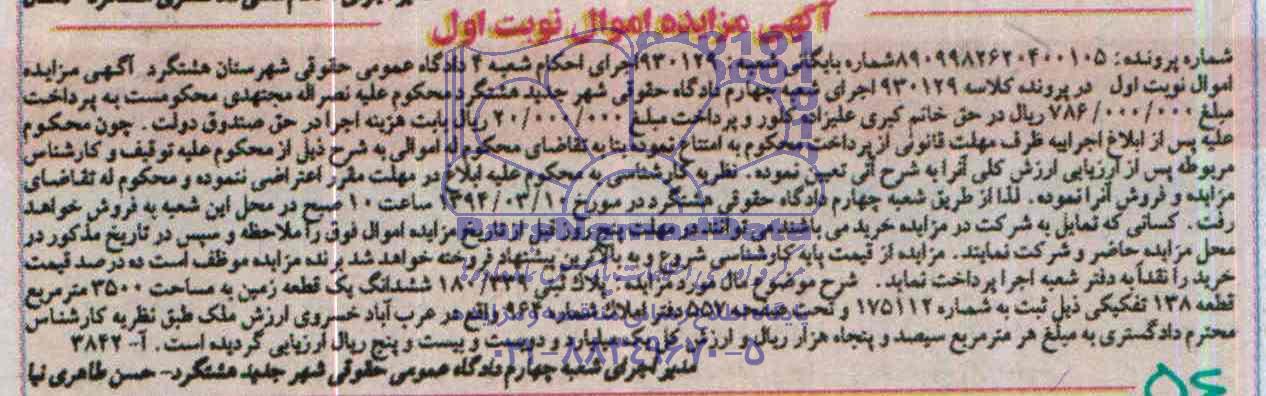 آگهی مزایده اموال نوبت اول
شماره پرونده: ۸۹۰۹۹۸۲۶۲۰۴۰۰۱۰۵ شماره بایگانی شعبه: ۹۳۰۱۲۹ اجرای احکام شعبه ۴ دادگاه عمومی حقوقی شهرستان هشتگرد آگهی مزایده
اموال نوبت اول در پرونده کلاسه ۹۳۰۱۲۹ اجرای شعبه چهارم دادگاه حقوقی شهر جدید هشتگرد محکوم علیه نصر اله مجتهدی محکومست به پرداخت
مبلغ ۷۸۶/۰۰۰/۰۰۰ ریال در حق خانم کبری علیزاده کلور و پرداخت مبلغ ۲۰/۰۰۰/۰۰۰ ریال بابت هزینه اجرا در حق صندوق دولت . چون محکوم
علیه پس از ابلاغ اجراییه ظرف مهلت قانونی از پرداخت محکوم به امتناع نموده بنا به تقاضای محکوم له اموالی به شرح ذیل از محکوم علیه توقیف و کارشناس
مربوطه پس از ارزیابی ارزش کلی آنرا به شرح آتی تعیین نموده . نظریه کارشناسی به محکوم علیه ابلاغ در مهلت مقرر اعتراضی ننموده و محکوم له تقاضای
مزایده و فروش آنرا نموده . لذا از طریق شعبه چهارم دادگاه حقوقی هشتگرد در مورخ ۱۳۹۴/۰۳/۱۰ ساعت ۱۰ صبح در محل این شعبه به فروش خواهد
رفت . کسانی که تمایل به شرکت در مزایده خرید می باشند می توانند در مهلت پنج روز قبل از تاریخ مزایده اموال فوق را ملاحظه و سپس در تاریخ مذکور در
محل مزایده حاضر و شرکت نمایند . مزایده از قیمت پایه کارشناسی شروع و به بالاترین پیشنهاد فروخته خواهد شد برنده مزایده موظف است ده درصد قیمت
خرید را نقداً به دفتر شعبه اجرا پرداخت نماید . شرح موضوع مال مورد مزایده : پلاک ثبتی ششدانگ یک قطعه زمین به مساحت ۳۵۰۰ مترمربع
قطعه ۱۳۸ تفکیکی ذیل ثبت به شماره ۱۷۵۱۱۲ و تحت صفحه ۵۵۷ دفتر املاک شماره ۹۶۲ واقع در عرب آباد خسروی ارزش ملک طبق نظریه کارشناس
محترم دادگستری به مبلغ هر مترمربع سیصد و پنجاه هزار ریال و ارزش کل یک میلیارد و دویست و بیست و پنج ریال ارزیابی گردیده است . آ- ۳۸۴۲
مدیر اجرای شعبه چهارم دادگاه عمومی حقوقی شهر جدید هشتگرد- حسن طاهری نیا
ParsNamadData
۰۲۱-۸۸۳۴۹۶۷۰-۵
۵۶